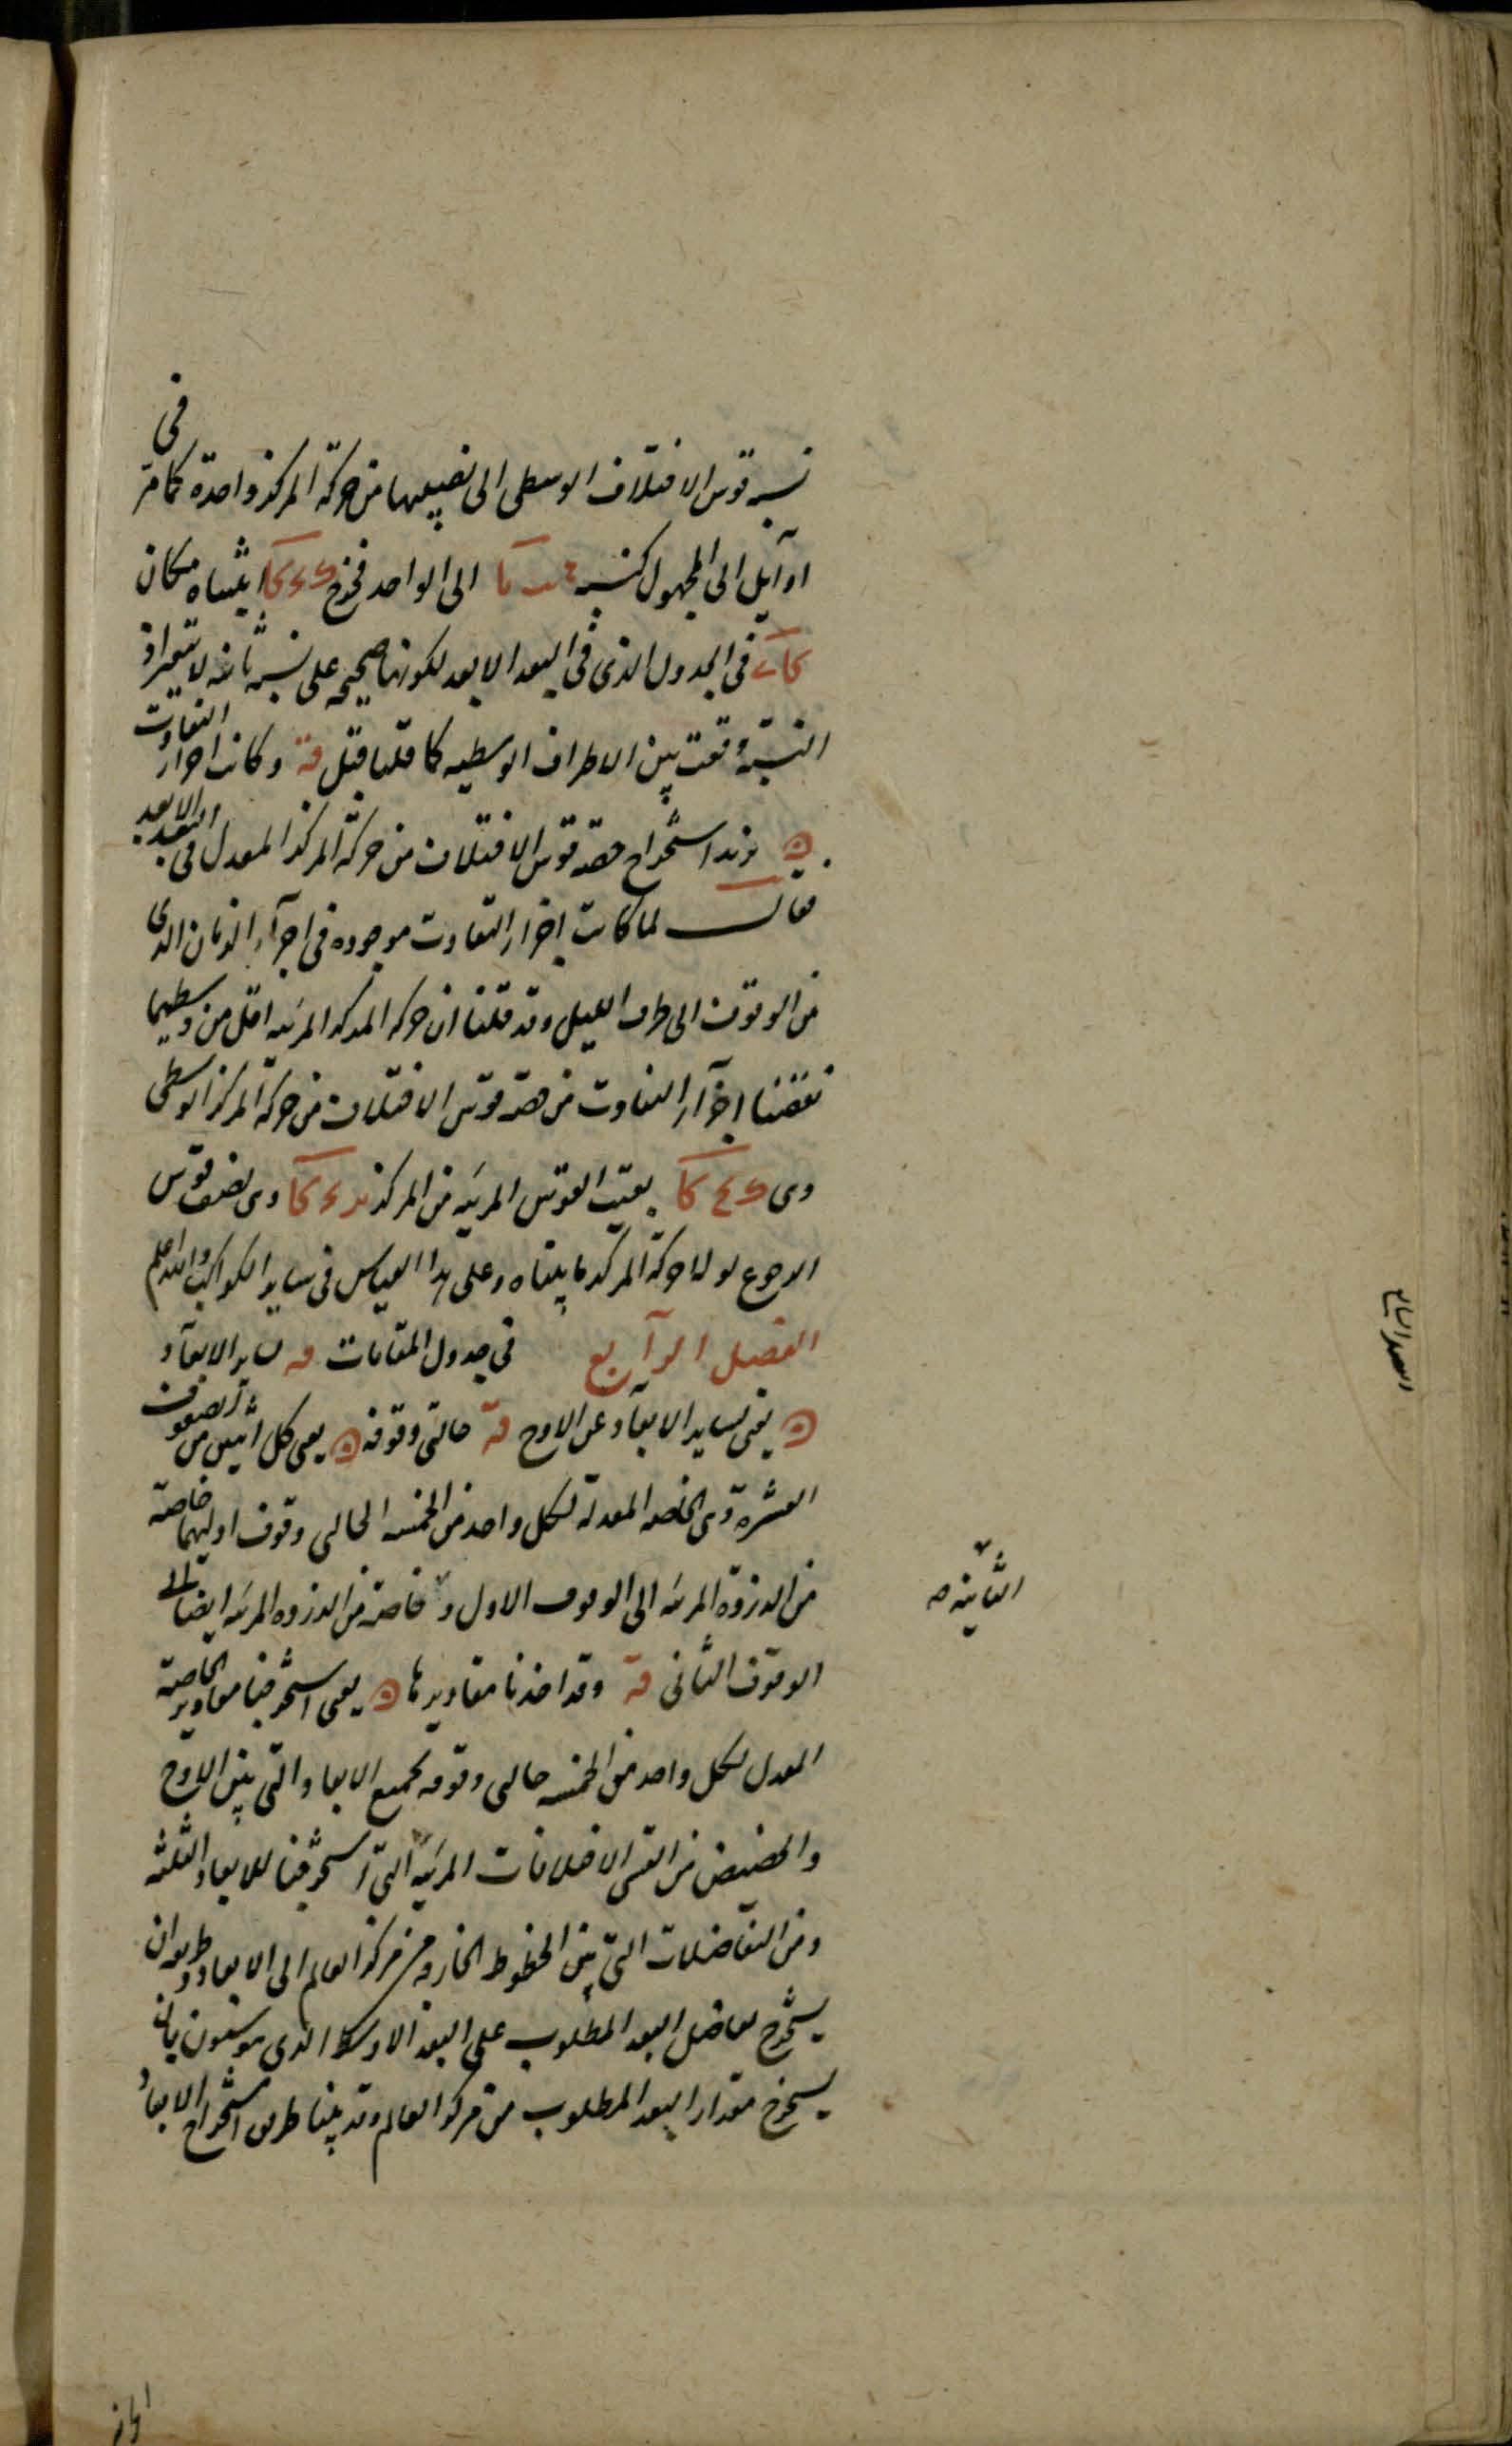 نسبه قوس الاختلاف الوسطى الى نصيبها من حركة المركز واحدة كما مر في
اوآيل الى المجهول كنسبه الى الواحد فخرج اثبتناه مكان
في الجدول الذي في البعد الابعد لكونها صحيحه على نسبه ثانيه لا تتغير اذ
النسبة وقعت بين الاطراف الوسطيه كما قلنا قبل قه وكانت اجزاء التفاوت
نريد استخراج حصة قوس الاختلاف من حركة المركز المعدل في البعد الابعد
فقال لما كانت اجزاء التفاوت موجوده في اجزآء الزمان الذى
من الوقوف الى طرف الليل وقد قلنا ان حركه المركز المرئيه اقل من وسطيها
نقصنا اجزآء التفاوت من حصة قوس الاختلاف من حركة المركز الوسطى
وهى بقيت القوس المرئيه من المركز وهى نصف قوس
الرجوع حركة المركز ما بيناه وعلى هذا القياس في ساير الكواكب والله اعلم
الفصل الرآبع في جدول المقامات قه لساير الابعآد
يعني لساير الابعآد عن الاوج قه حالتي وقوفه يعني كل اثنين من الصفوف
العشره قسى الخاصه المعدلة لكل واحد من الخمسه الحالى وقوف اوليهما خاصته
من الذروة المرئيه الى الوقوف الاول و خاصته من الذروه المرئيه ايضا الى
الثانيه صح
الوقوف الثاني قه وقد اخذنا مقاديرها يعني استخرجنا مقادير الخاصة
المعدل لكل واحد من الخمسه حالى وقوفه لجميع الابعاد التي بين الاوج
والحضيض من القسى الاختلافات المرئيه التي استخرجنا للابعاد الثلثه
ومن التفاضلات التي بين الخطوط الخارجه من مركز العالم الى الابعاد وطريقه ان
يستخرج تفاضل البعد المطلوب على البعد الاوسط الذي هو ستون بان
يستخرج مقدار البعد المطلوب من مركز العالم وقد بينا طريق استخراج الابعاد